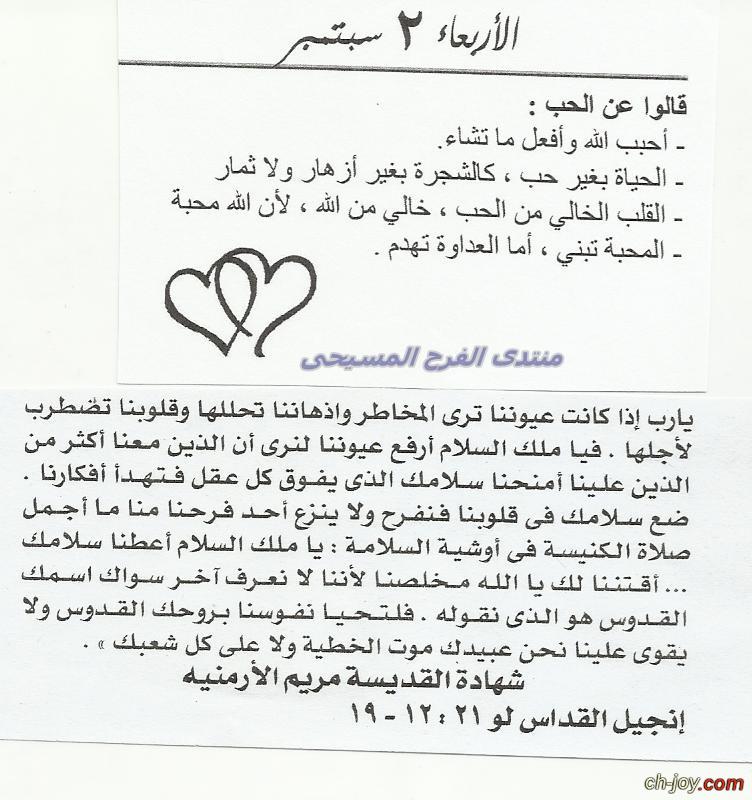 الأربعاء ٢ سبتمبر
قالوا عن الحب :
- أحبب الله وأفعل ما تشاء.
- الحياة بغير حب ، كالشجرة بغير أزهار ولا ثمار
- القلب الخالي من الحب ، خالي من الله ، لأن الله محبة
- المحبة تبني ، أما العداوة تهدم .
منتدى الفرح المسيحى
يارب إذا كانت عيوننا ترى المخاطر واذهاننا تحللها وقلوبنا تضطرب
لأجلها . فيا ملك السلام أرفع عيوننا لنرى أن الذين معنا أكثر من
الذين علينا أمنحنا سلامك الذى يفوق كل عقل فتهدأ أفكارنا .
ضع سلامك فى قلوبنا فنفرح ولا ينزع أحد فرحنا منا ما أجمل
صلاة الكنيسة فى أوشية السلامة : يا ملك السلام أعطنا سلامك
... أقتننا لك يا الله مخلصنا لأننا لا نعرف آخر سواك اسمك
القدوس هو الذى نقوله . فلتحيا نفوسنا بروحك القدوس ولا
يقوى علينا نحن عبيدك موت الخطية ولا على كل شعبك » .
شهادة القديسة مريم الأرمنيه
إنجيل القداس لو ٢١ : ١٢ - ١٩
ch-joy.com